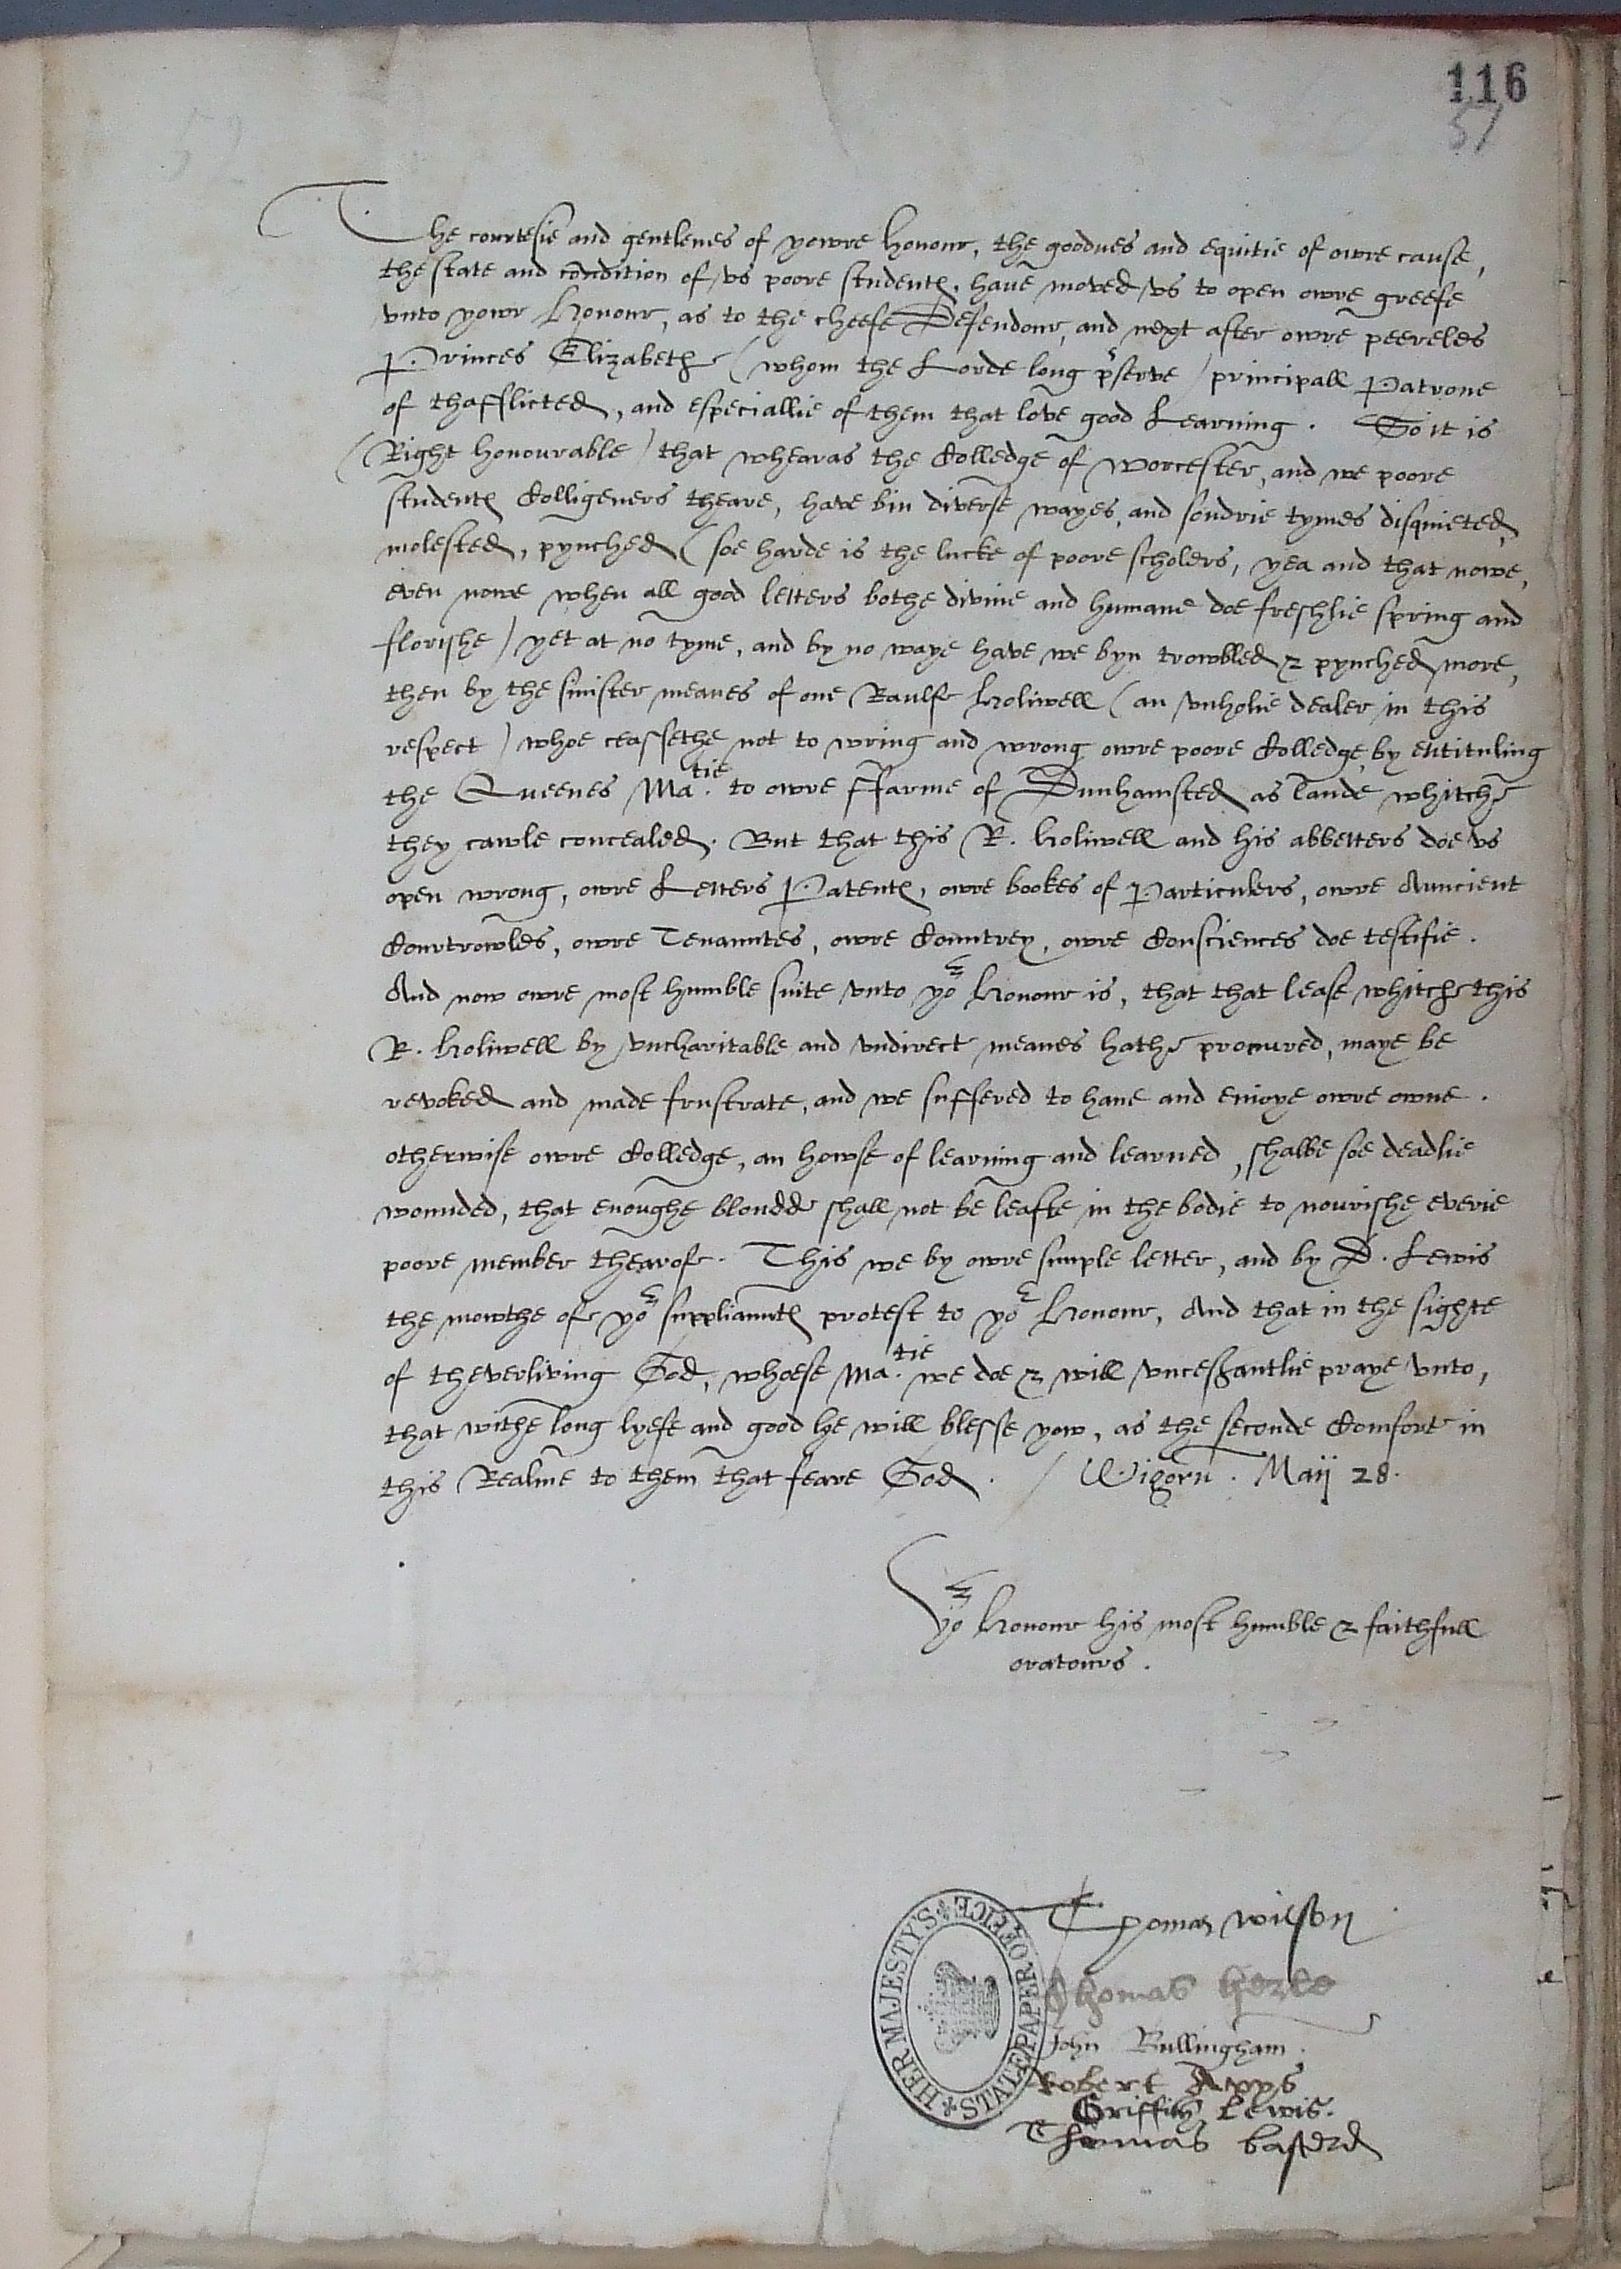 116
57
52
The courtesie and gentlenes of yowre honour, the goodnes and equitie of owre cause,
the state and condition of vs poore students, have moved vs to open owre greefe
vnto yowr Honour, as to the cheefe Defendour, and next after owre peereles
Princes Elizabeth (whom the Lorde long pserve) principall Patrone
of thafflicted, and especiallie of them that love good Learning. So it is
(Right honourable) that whearas the Colledge of Worcester, and we poore
students Colligeners theare, have bin diverse wayes, and sondrie tymes disquieted,
molested, pynched (soe harde is the lucke of poore scholers, yea and that nowe,
even nowe when all good letters bothe divine and humane doe freshlie spring and
florishe) yet at no tyme, and by no waye have we byn trowbled & pynched more,
then by the sinister meanes of one Raulfe Holiwell (an vnholie dealer in this
respect) whoe ceassethe not to wring and wrong owre poore Colledge, by entituling
the Queenes Ma.tie to owre ffarme of Dunhamsted as lande whitche
they cawle concealed. But that this R. Holiwell and his abbetters doe vs
open wrong, owre Letters Patents, owre bookes of Particulers, owre Auncient
Courtrowles, owre Tenauntes, owre Countrey, owre Consciences doe testifie.
And now owre most humble suite vnto yor Honour is, that that lease whitche this
R. Holiwell by vncharitable and vndirect meanes hathe procured, maye be
revoked and made frustrate, and we suffered to haue and enioye owre owne.
otherwise owre Colledge, an howse of learning and learned, shalbe soe deadlie
wounded, that enoughe bloudde shall not be leafte in the bodie to nourishe everie
poore member thearof. This we by owre simple letter, and by D. Lewis
the mowthe of yor suppliaunts protest to yor Honour, And that in the sighte
of theverliving God, whoese Ma.tie we doe & will vncessantlie praye vnto,
that withe long lyefe and good he will blesse yow, as the seconde Comfort in
this Realme to them that feare God. / Wigorn. Maij 28.
Yor Honour his most humble & faithfull
oratours.
Thomas Wilson
Thomas Herle
John Bullingham.
Robert Apps
Griffith Lewis.
Thomas basterd
HER MAJESTY'S STATE PAPER OFFICE